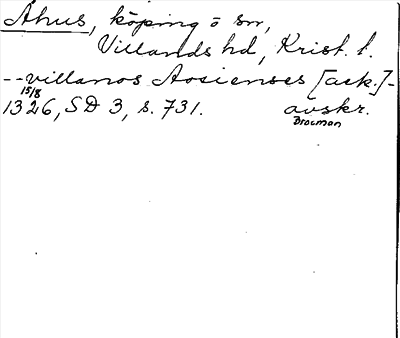 Åhus, köping o sn,
Villands hd, Krist. l.
--villanos Aosienses [ack.]-
15/8
1326, SD 3, s. 731. avskr.
Brocman